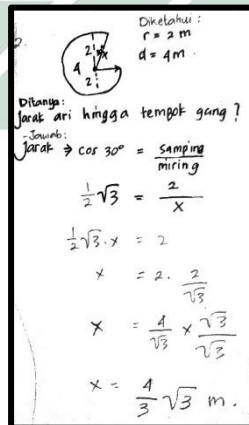 2.
Diketahui :
r = 2 m
d = 4 m.
2
x
4
2
Ditanya:
Jarak ari hingga tembok gang ?
- Jawab:
Jarak → cos 30° = samping / miring
1/2 √3 = 2 / x
1/2 √3 . x = 2
x = 2 . 2 / √3
x = 4 / √3 × √3 / √3
x = 4 / 3 √3 m .